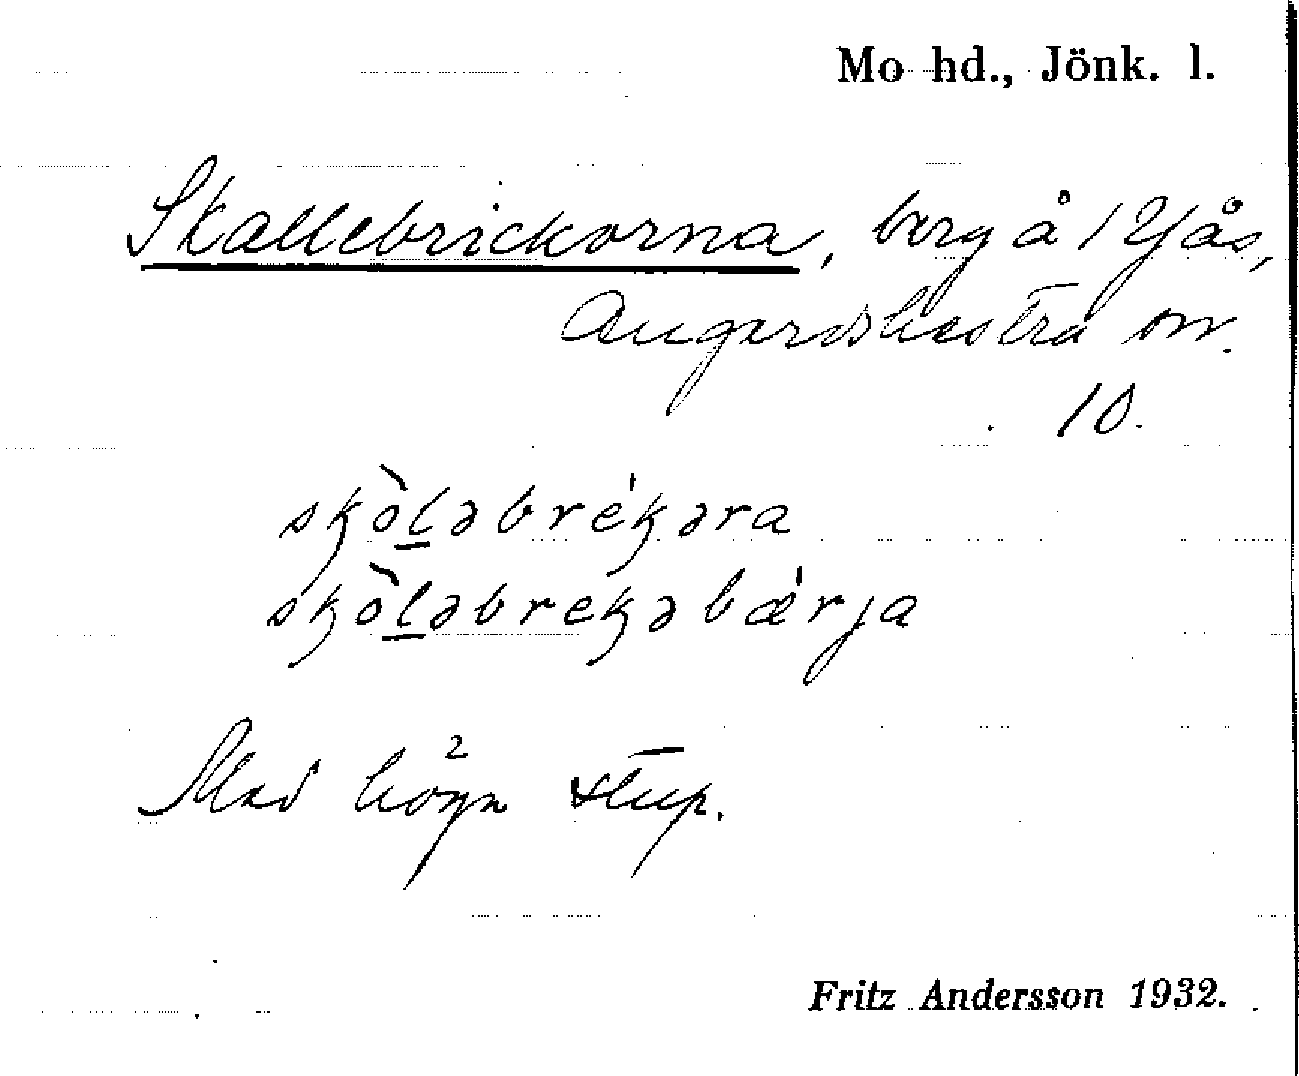 Mo hd., Jönk. l.
Skallebrickorna, berg å 1 Yås,
Angerdshestra sn.
10.
skòlabrékəra
skòləbrekəbǽrja
Med höga stup.
Fritz Andersson 1932.